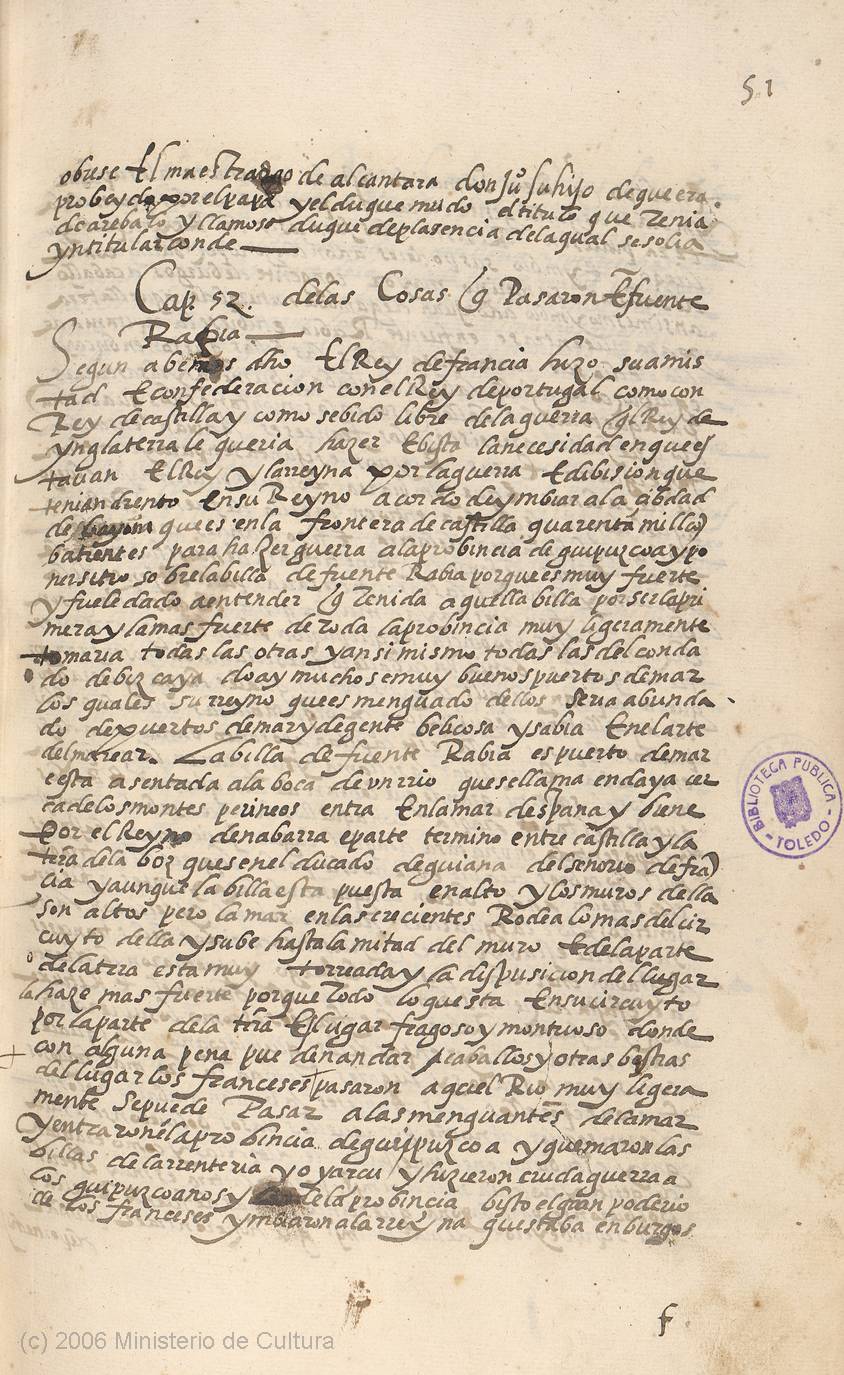 51
obuse El maestrazgo de alcantara don Juº su hijo de que era
probeydo por el papa y el duque mudo el titulo que Tenia
de arebalo y llamose duque de plasencia de la qual se solia
yntitular conde
Cap. 52. de las Cosas q Pasaron E fuente
Rabia
Segun abemos dho El Rey de francia hizo su amis
tad E confederacion con el Rey de portugal como con
Rey de castilla y como se bido libre de la guerra q el Rey de
ynglaterra le queria hazer E bista la necesidad en que es
tauan El Rey y la rreyna por la guerra E dibision que
tenian drento En su Reyno acordo de ymbiar a la çibdad
de bayona que es en la frontera de castilla quarenta mill
batientes para hazer guerra a la probincia de guipuzcoa y po
ner sitio sobre la billa de fuente Rabia porque es muy fuerte
y fuele dado a entender q Tenida aquella billa por ser la pri
mera y la mas fuerte de toda la probincia muy ligeramente
tomaria todas las otras y ansi mismo todas las del conda
do de bizcaya do ay muchos e muy buenos puertos de mar
los quales su rreyno que es menguado dellos seria abunda
do de puertos de mar y de gente belicosa y sabia En el arte
del marear. La billa de fuente Rabia es puerto de mar
e esta asentada a la boca de vn rrio que se llama endaya cer
ca de los montes perineos entra En la mar despana y biene
Por el Reyno de nabarra e parte termino entre castilla y la
tra de la bor ques en el ducado de guiana del senorio de fra
cia y aunque la billa esta puesta en alto y los muros della
son altos pero la mar en las crecientes Rodea lo mas del cir
cuyto della y sube hasta la mitad del muro E de la parte
de la tra esta muy torreada y la dispusicion del lugar
la haze mas fuerte porque Todo lo que esta En su circuyto
por la parte de la trra Es lugar fragoso y montuoso donde
con alguna pena pueden andar a caballos y otras bestias
del lugar los franceses pasaron aquel Rio muy ligera
mente se puede Pasar a las menguantes de la mar
y entraron e la probincia de guipuzcoa y quemaron las
billas de la rrenteria y oyarcu y hizieron cruda guerra a
los guipuzcoanos y de la probincia bisto el gran poderio
de los franceses ymbiaron a la rreyna questaba en burgos
f
BIBLIOTECA PÚBLICA - TOLEDO -
(c) 2006 Ministerio de Cultura